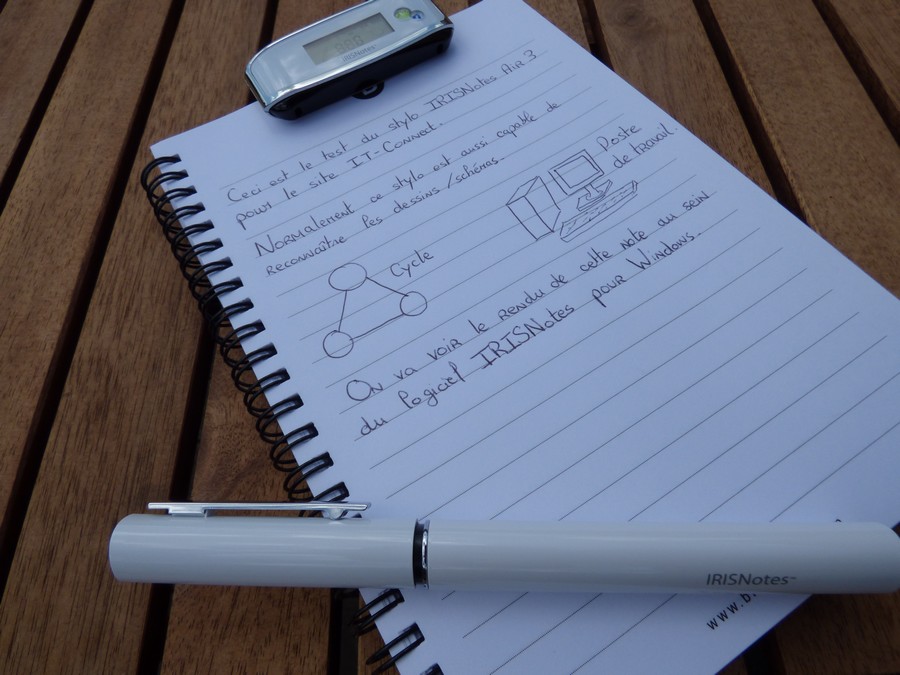 IRISNotes
Ceci est le test du stylo IRISNotes Air 3
pour le site IT-Connect.
Normalement ce stylo est aussi capable de
reconnaître les dessins / schémas.
Poste
de travail.
Cycle
On va voir le rendu de cette note au sein
du logiciel IRISNotes pour Windows.
IRISNotes™
www.b